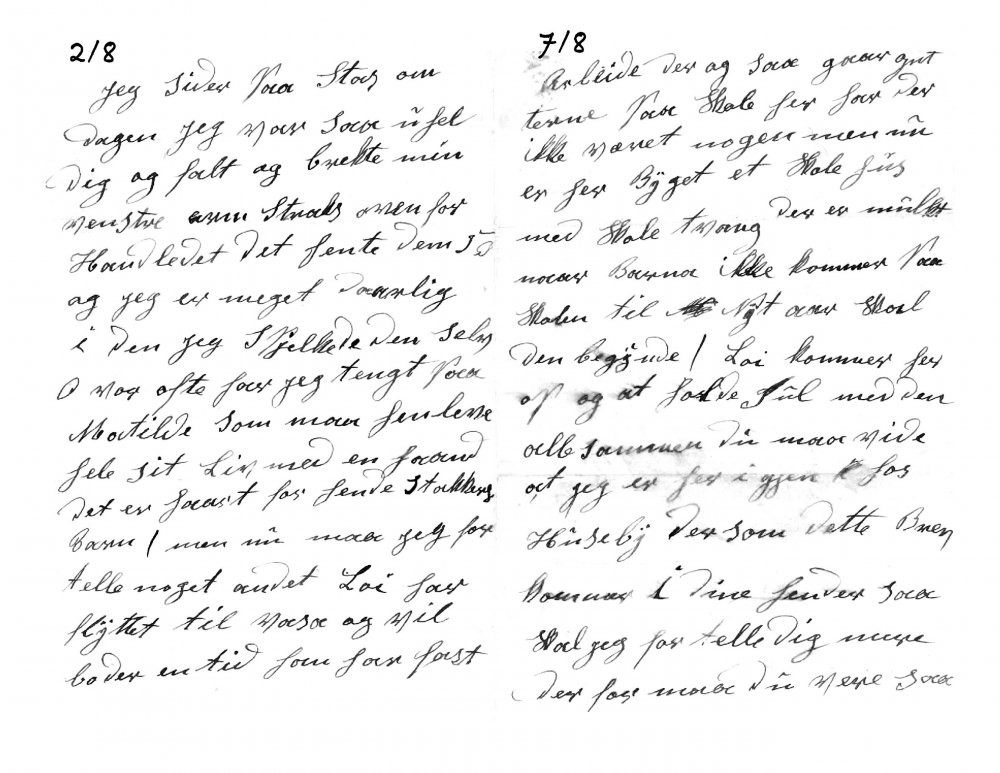 2/8
jeg sider paa Stas om
dagen jeg var saa ufel
dig og falt og brekte min
venstre arm Straks ovenfor
Handledet det hente dem 5
og jeg er meget daarlig
i den jeg Spjelkede den selv
O vor ofte har jeg tengt paa
Matilde som maa henleve
hele sit Liv med en haand
det er haart for hende Stakkers
Barn / men nu maa jeg for
telle noget andet Loi har
flyttet til Vasa og vil
bo der en tid han har fast
7/8
Arbeide der og saa gaar gut
terne paa Skole her har der
ikke været nogen men nu
er her Byget et Skole hus
med Skole tvang der er mulkt
naar Barna ikke kommer paa
Skolen til Nyt aar Skal
den begynde / Loi kommer her
op og at holde Jul med den
alle sammen du maa vide
at jeg er her i gjen hos
Huseby der som dette Brev
kommer i dine hender saa
Skal jeg for telle dig mere
der for maa du vere saa